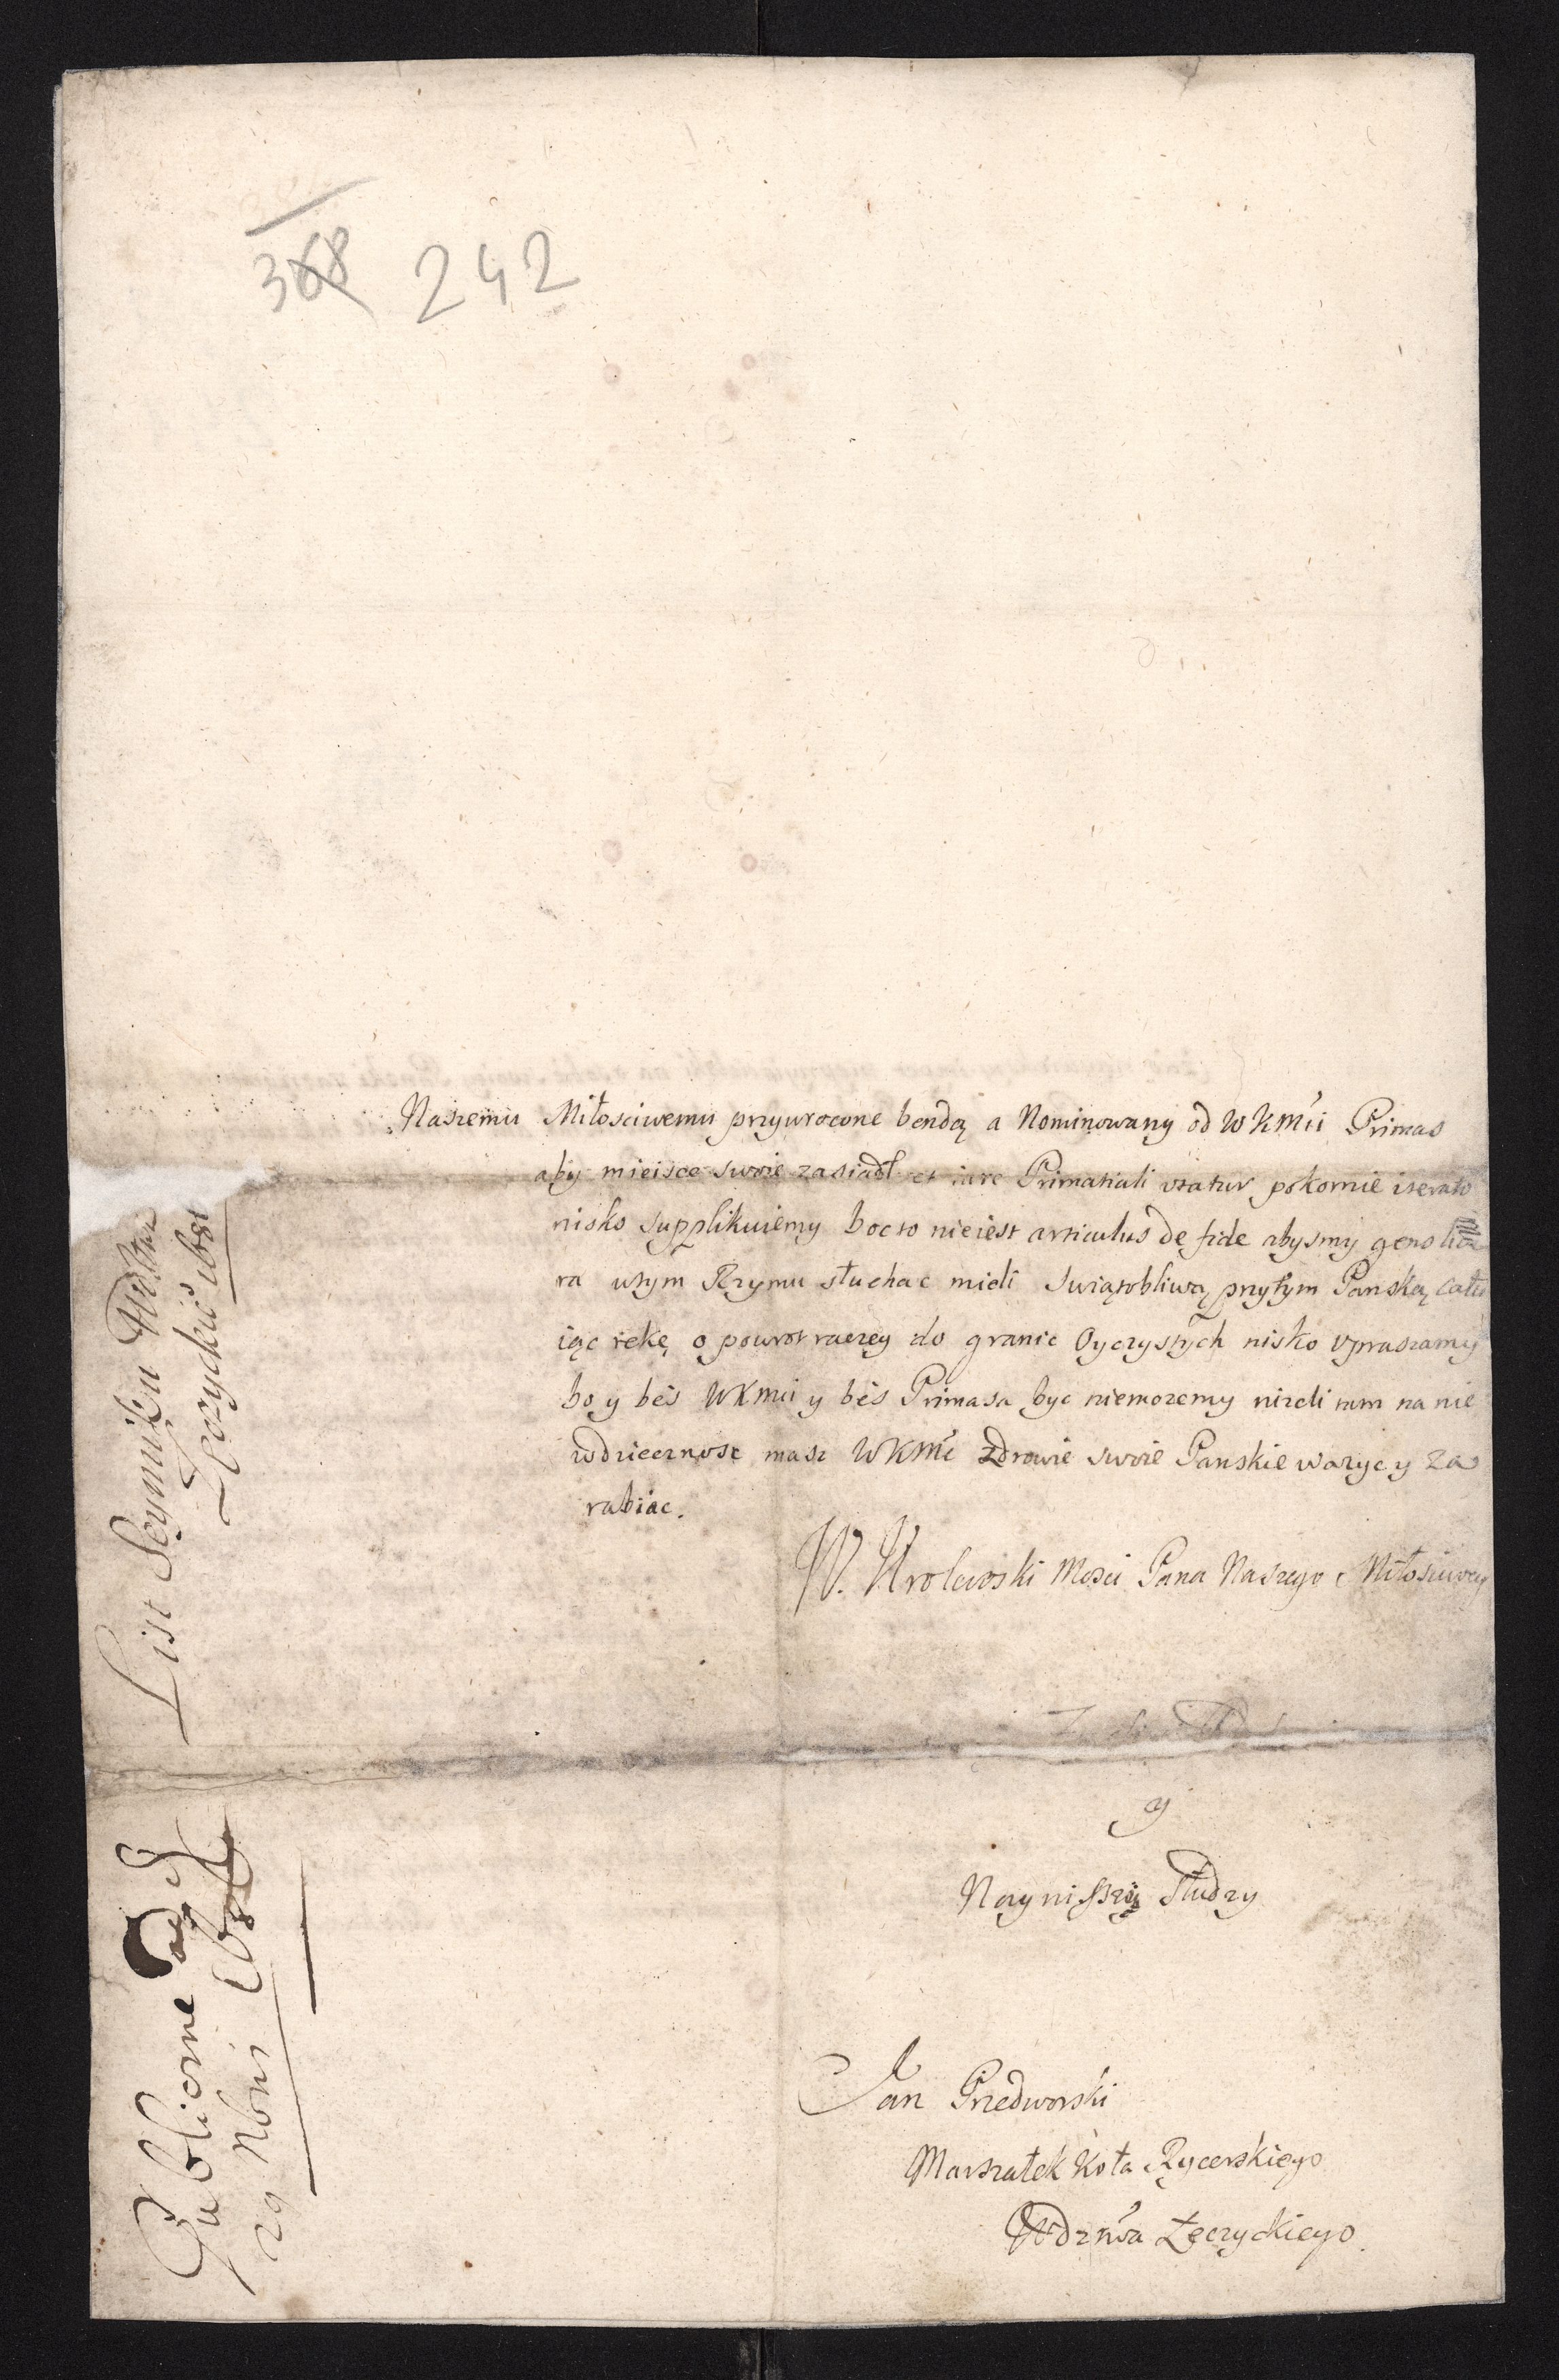 368 242
Naszemu Miłosciwemu przywrocone bendą a Nominowany od WKMći Primas
aby mieisce swoie zasiadł et iure Primatiali vtatur pokornie iterato
nisko supplikuiemy bocto nieiest articulus de fide abysmy
ra wtym Rzymu słuchac mieli Swiątobliwą przytym Panską cału
iąc rękę o powrot raczey do granic Oyczystych nisko vpraszamy
bo y bes WKmci y bes Primasa byc niemozemy nizeli tam na nie
wdzięcznosc masz WKMć zdrowie swoie Panskie wazyc y za
rabiac.
W. Krolewski Mosci Pana Naszego Miłosciweg
y
Słudzy
Jan Przedworski
Marszałek Koła Rycerskiego
Wdztwa Łęczyckiego
List Seymiku
Publicorne
29 Nbris